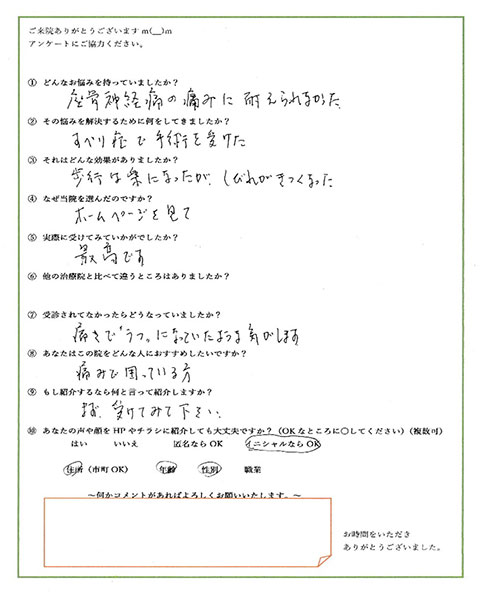 ご来院ありがとうございます m(__)m
アンケートにご協力ください。
① どんなお悩みを持っていましたか？
座骨神経痛の痛みに耐えられなかった
② その悩みを解決するために何をしてきましたか？
すべり症で手術を受けた
③ それはどんな効果がありましたか？
歩行は楽になったが、しびれがきつくなった
④ なぜ当院を選んだのですか？
ホームページを見て
⑤ 実際に受けてみていかがでしたか？
最高です
⑥ 他の治療院と比べて違うところはありましたか？
⑦ 受診されてなかったらどうなっていましたか？
痛さで"うつ"になっていたような気がします
⑧ あなたはこの院をどんな人におすすめしたいですか？
痛みで困っている方
⑨ もし紹介するなら何と言って紹介しますか？
まず、受けてみて下さい。
⑩ あなたの声や顔をHPやチラシに紹介しても大丈夫ですか？（OKなところに○してください）（複数可）
はい いいえ 匿名ならOK イニシャルならOK
住所（市町OK） 年齢 性別 職業
～何かコメントがあればよろしくお願いいたします。～
お時間をいただき
ありがとうございました。